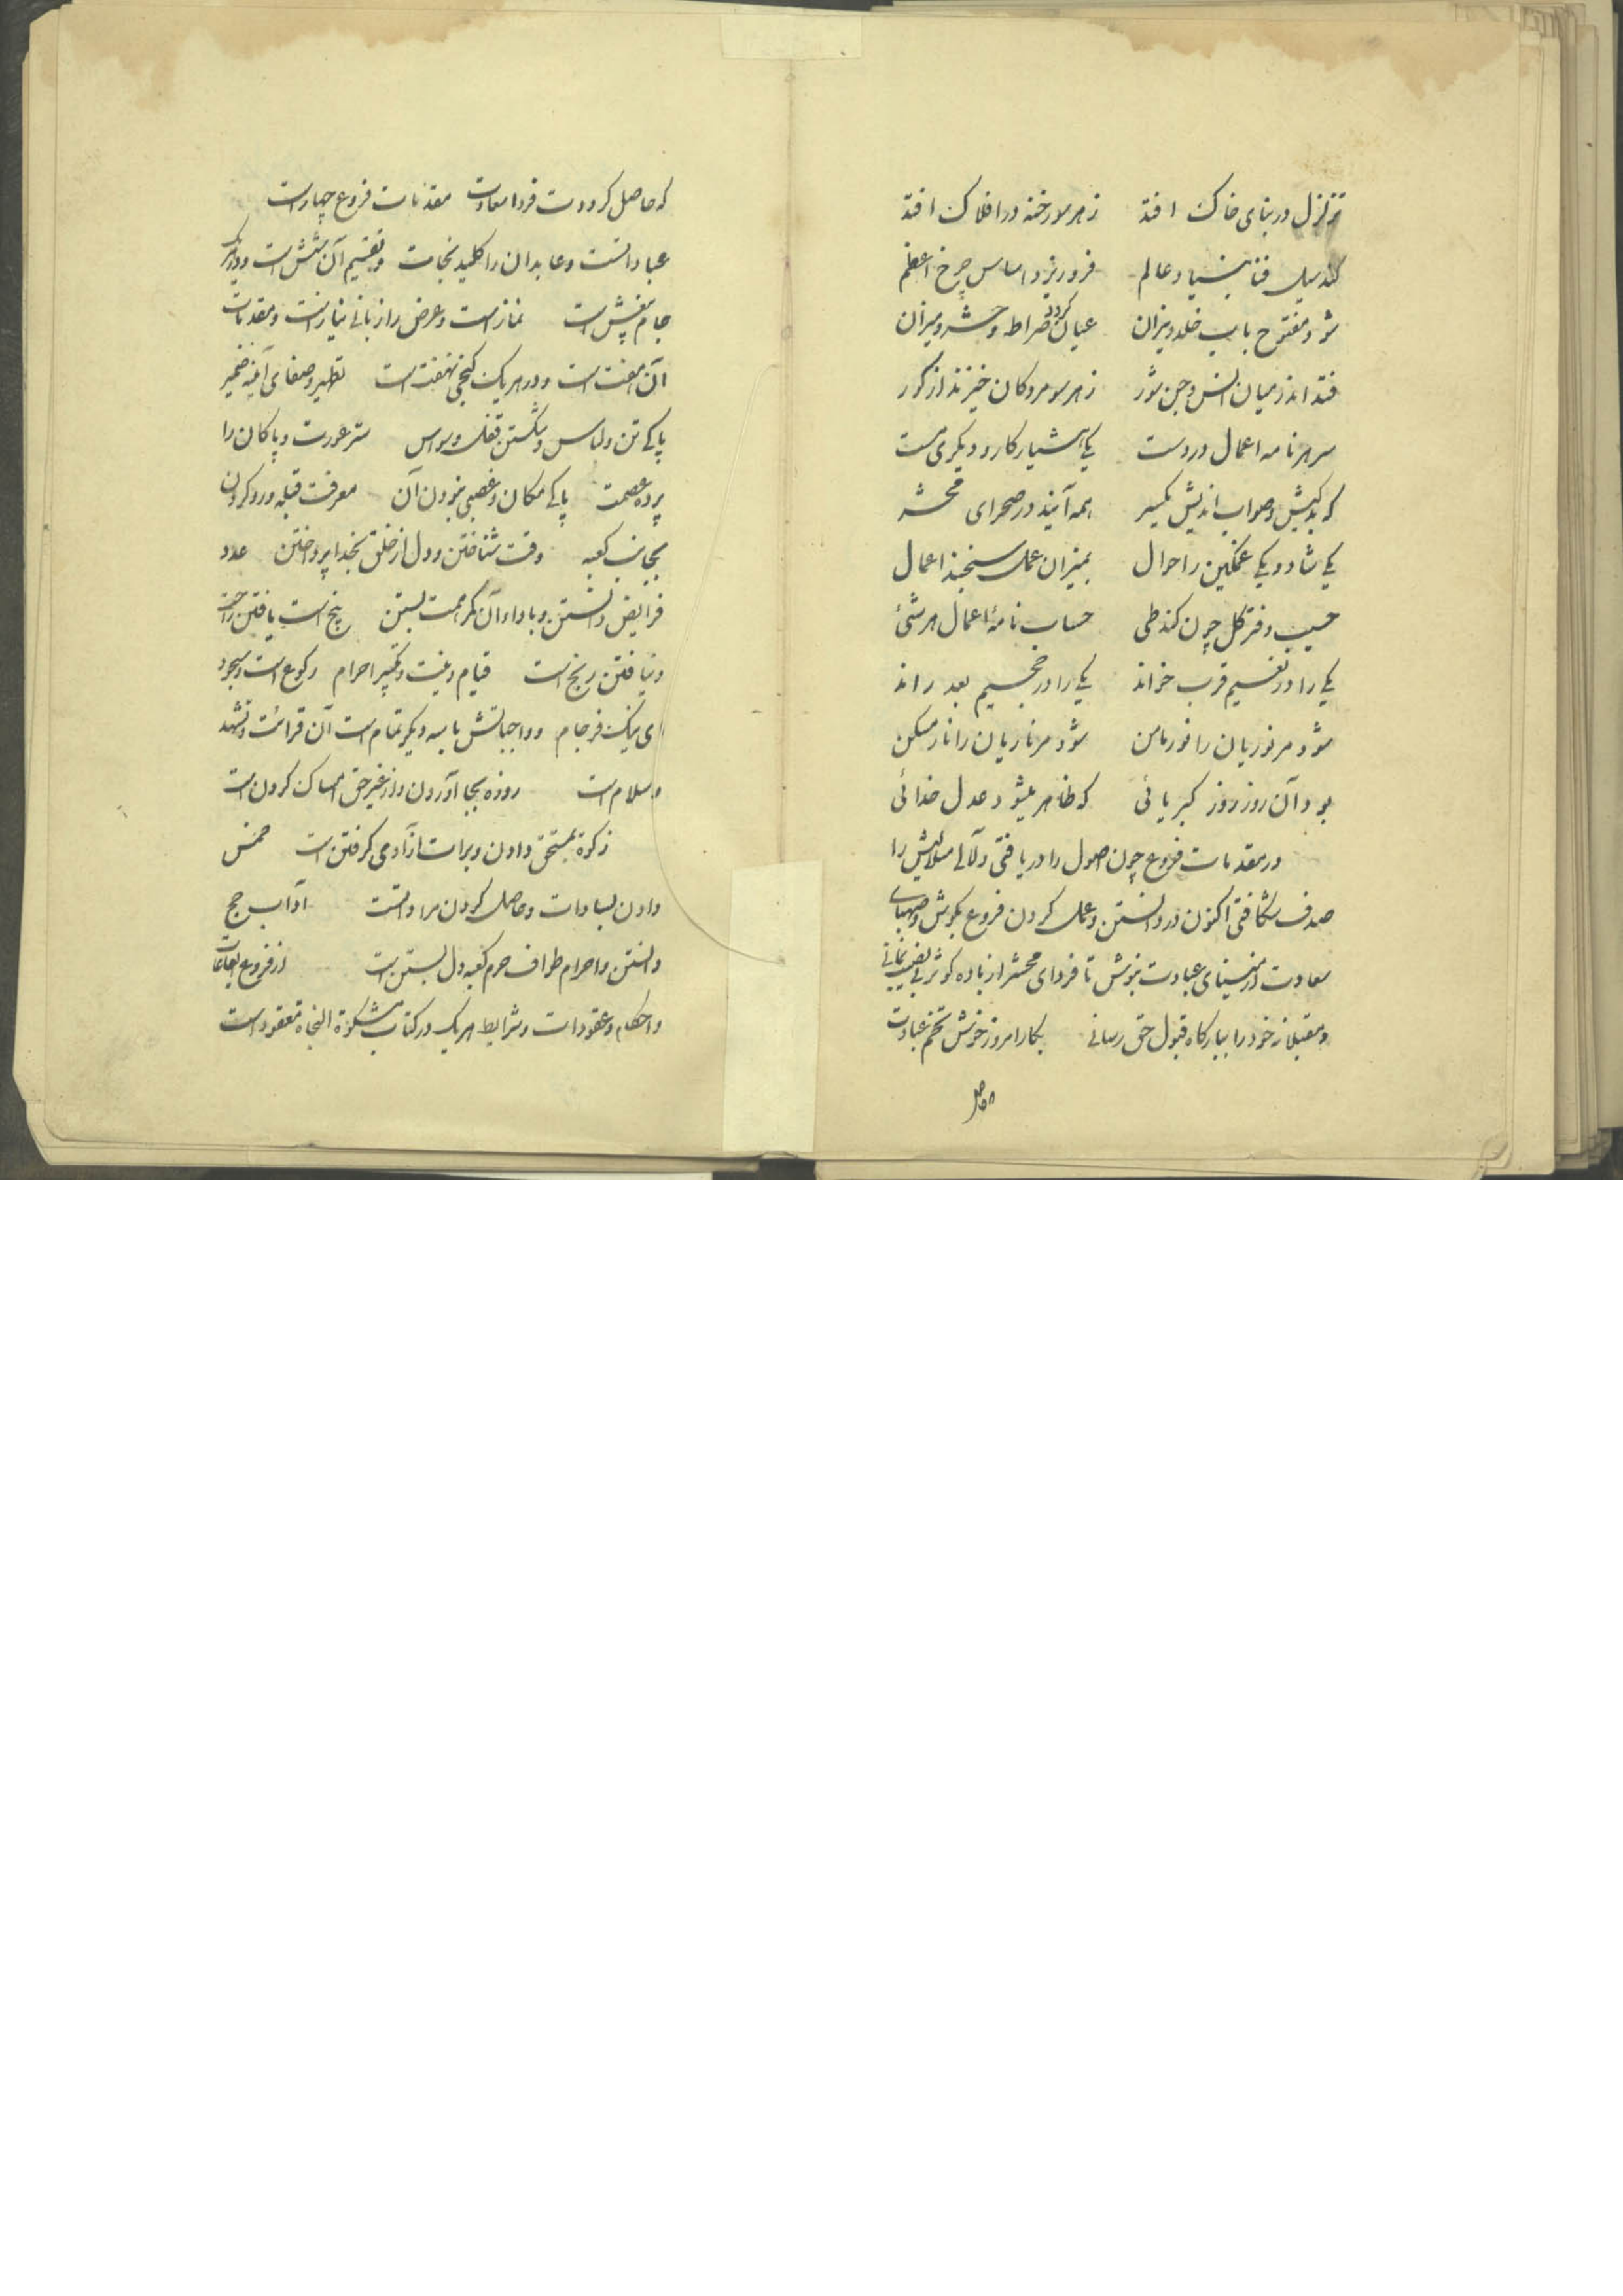 تزلزل در بنای خاک افتد زهر سو رخنه در افلاک افتد
کند سیل فنا بنیاد عالم فرو ریزد اساس چرخ اعظم
شود مفتوح باب خلد و نیزان عیان گردد صراط و حشر و میزان
فتد اندر میان انس و جن شور زهر سو مردکان خیزند از کور
سر هر نامه اعمال در دست یکی هشیار کار و دیکری مست
که بدکیش و صواب اندیش یکسر همه آیند در صحرای محشر
یکی شاد و یکی غمکین ز احوال بمیزان عمل سنجند اعمال
حسیب دفتر کل چون کند طی حساب نامهٔ اعمال هر شئ
یکی را در نعیم قرب خواند یکی را در جحیم بعد راند
شود مر نوریان را نور مامن شود مر ناریان را نار مسکن
بود آن روز روز کبریائی که ظاهر میشود عدل خدائی
در مقدمات فروع چون اصول را دریافتی و لآلی مسائلش را
صدف شکافتی اکنون در دانستن و عمل کردن فروع بکوش و صهبای
سعادت از مینای عبادت بنوش تا فردای محشر از باده کوثر بی نصیب نمانی
و مقبلانه خود را ببارکاه قبول حق رسانی بکار امروز خوش تخم عبادت
که حاصل کرددت فردا سعادت مقدمات فروع چهار است
عبادات است و عابدان را کلید نجات و تقسیم آن شش است و در هر یک
جام بیغش است نماز است و عرض راز بانی نیاز است و مقدمات
آن هفت است و در هر یک کنجی نهفت است تطهیر و صفای آینه ضمیر
پاکی تن و لباس و شکستن قفل وسواس ستر عورت و پاکان را
پرده عصمت پاکی مکان و غصبی نبودن آن معرفت قبله و رو کردن
بجانب کعبه وقت شناختن و دل از خلق بخدا پرداختن عدد
فرایض دانستن و با داء آن کمر همت بستن پنج است یافتن راحت
و نیافتن رنج است قیام و نیت و تکبیر احرام رکوع است و سجود
ای نیک فرجام و واجباتش با سه دیکر تمام است آن قرائت و تشهد
و سلام است روزه بجا آوردن و از غیر حق امساک کردن است
زکوة بمستحق دادن و برات آزادی کرفتن است خمس
دادن بسادات و حاصل کردن مرادات است آداب حج
دانستن و احرام طواف حرم کعبه دل بستن است از فروع
و احکام و عقودات و شرایط هر یک در کتاب مشکوة النجاه معقود است